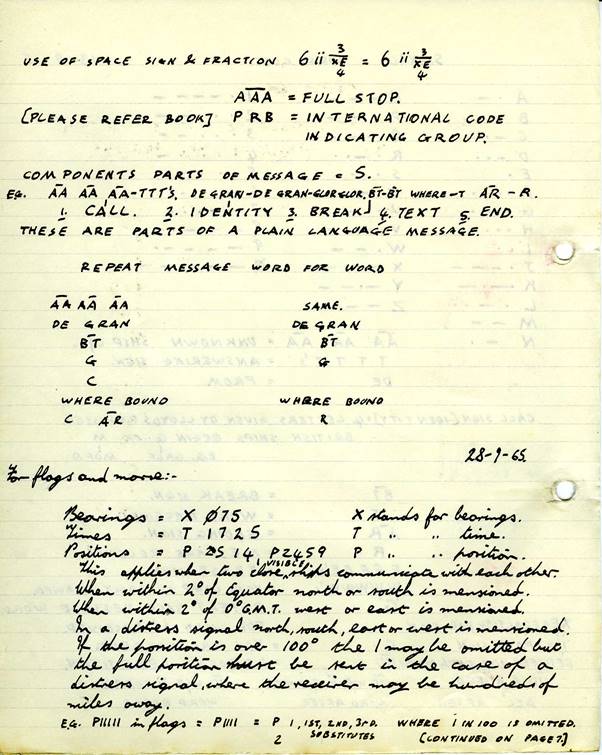 USE OF SPACE SIGN & FRACTION 6 ii 3/XE4 = 6 ii 3/XE4
A̅A̅A̅ = FULL STOP.
[PLEASE REFER BOOK] PRB = INTERNATIONAL CODE
INDICATING GROUP.
COMPONENTS PARTS OF MESSAGE = 5.
EG. A̅A̅ A̅A̅ A̅A̅-TTT'S, DE GRAN-DE GRAN-GLOR GLOR, B̅T̅-B̅T̅ WHERE-T A̅R̅ - R.
1. CALL. 2. IDENTITY 3. BREAK 4. TEXT 5. END.
THESE ARE PARTS OF A PLAIN LANGUAGE MESSAGE.
REPEAT MESSAGE WORD FOR WORD
A̅A̅ A̅A̅ A̅A̅ SAME.
DE GRAN DE GRAN
B̅T̅ B̅T̅
G G
C
WHERE BOUND WHERE BOUND
C A̅R̅ R
28-9-65
For flags and morse:-
Bearings = X Ø75 X stands for bearings.
Times = T 1725 T " " time.
Positions = P 2514, P2459 P " " position.
This applies when two close, VISIBLE ships communicate with each other.
When within 2° of Equator north or south is mensioned.
When within 2° of 0° G.M.T. west or east is mensioned.
In a distress signal north, south, east or west is mensioned.
If the position is over 100° the 1 may be omitted but
the full position must be sent in the case of a
distress signal, where the receiver may be hundreds of
miles away.
E.G. P11111 in flags = P1111 = P 1, 1ST, 2ND, 3RD. WHERE 1 IN 100 IS OMITTED.
2 SUBSTITUTES [CONTINUED ON PAGE 7.]